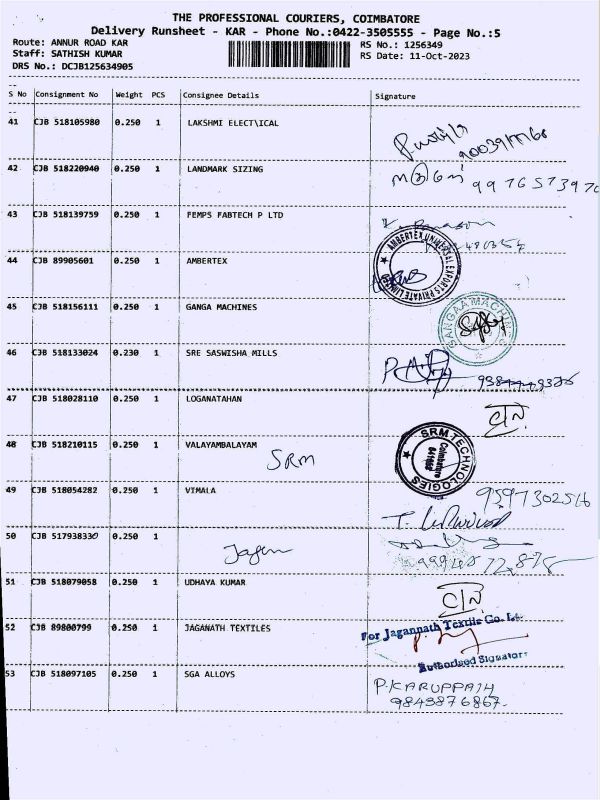 THE PROFESSIONAL COURIERS, COIMBATORE
Delivery Runsheet - KAR - Phone No.:0422-3505555 - Page No.:5
Route: ANNUR ROAD KAR RS No.: 1256349
Staff: SATHISH KUMAR RS Date: 11-Oct-2023
DRS No.: DCJB125634905
S No Consignment No Weight PCS Consignee Details Signature
41 CJB 518105980 0.250 1 LAKSHMI ELECT\ICAL
42 CJB 518220940 0.250 1 LANDMARK SIZING
9976573970
43 CJB 518139759 0.250 1 FEMPS FABTECH P LTD
44 CJB 89905601 0.250 1 AMBERTEX
AMBERTEX UNIVERSAL EXPORTS PRIVATE LIMITED
45 CJB 518156111 0.250 1 GANGA MACHINES
SANGAA MACHINES
46 CJB 518133024 0.230 1 SRE SASWISHA MILLS
47 CJB 518028110 0.250 1 LOGANATAHAN
48 CJB 518210115 0.250 1 VALAYAMBALAYAM
SRM
SRM TECHNOLOGIES
Coimbatore
49 CJB 518054282 0.250 1 VIMALA
9597302516
50 CJB 517938330 0.250 1
Jagan
51 CJB 518079058 0.250 1 UDHAYA KUMAR
52 CJB 89800799 0.250 1 JAGANATH TEXTILES
For Jagannath Textile Co. Ltd
Authorised Signatory
53 CJB 518097105 0.250 1 SGA ALLOYS
P.KARUPPAIH
9843876867.